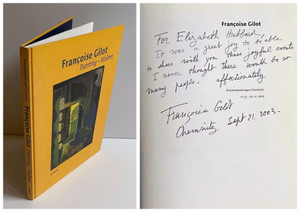 Françoise Gilot
Painting – Malerei
Françoise Gilot
Françoise Gilot
For Elizabeth Hubbard
It was a great joy to be able
to share with you these joyful events
I never thought there would be so
many people. affectionately
Françoise Gilot
Chemnitz Sept 21. 2003.
Kunstsammlungen Chemnitz